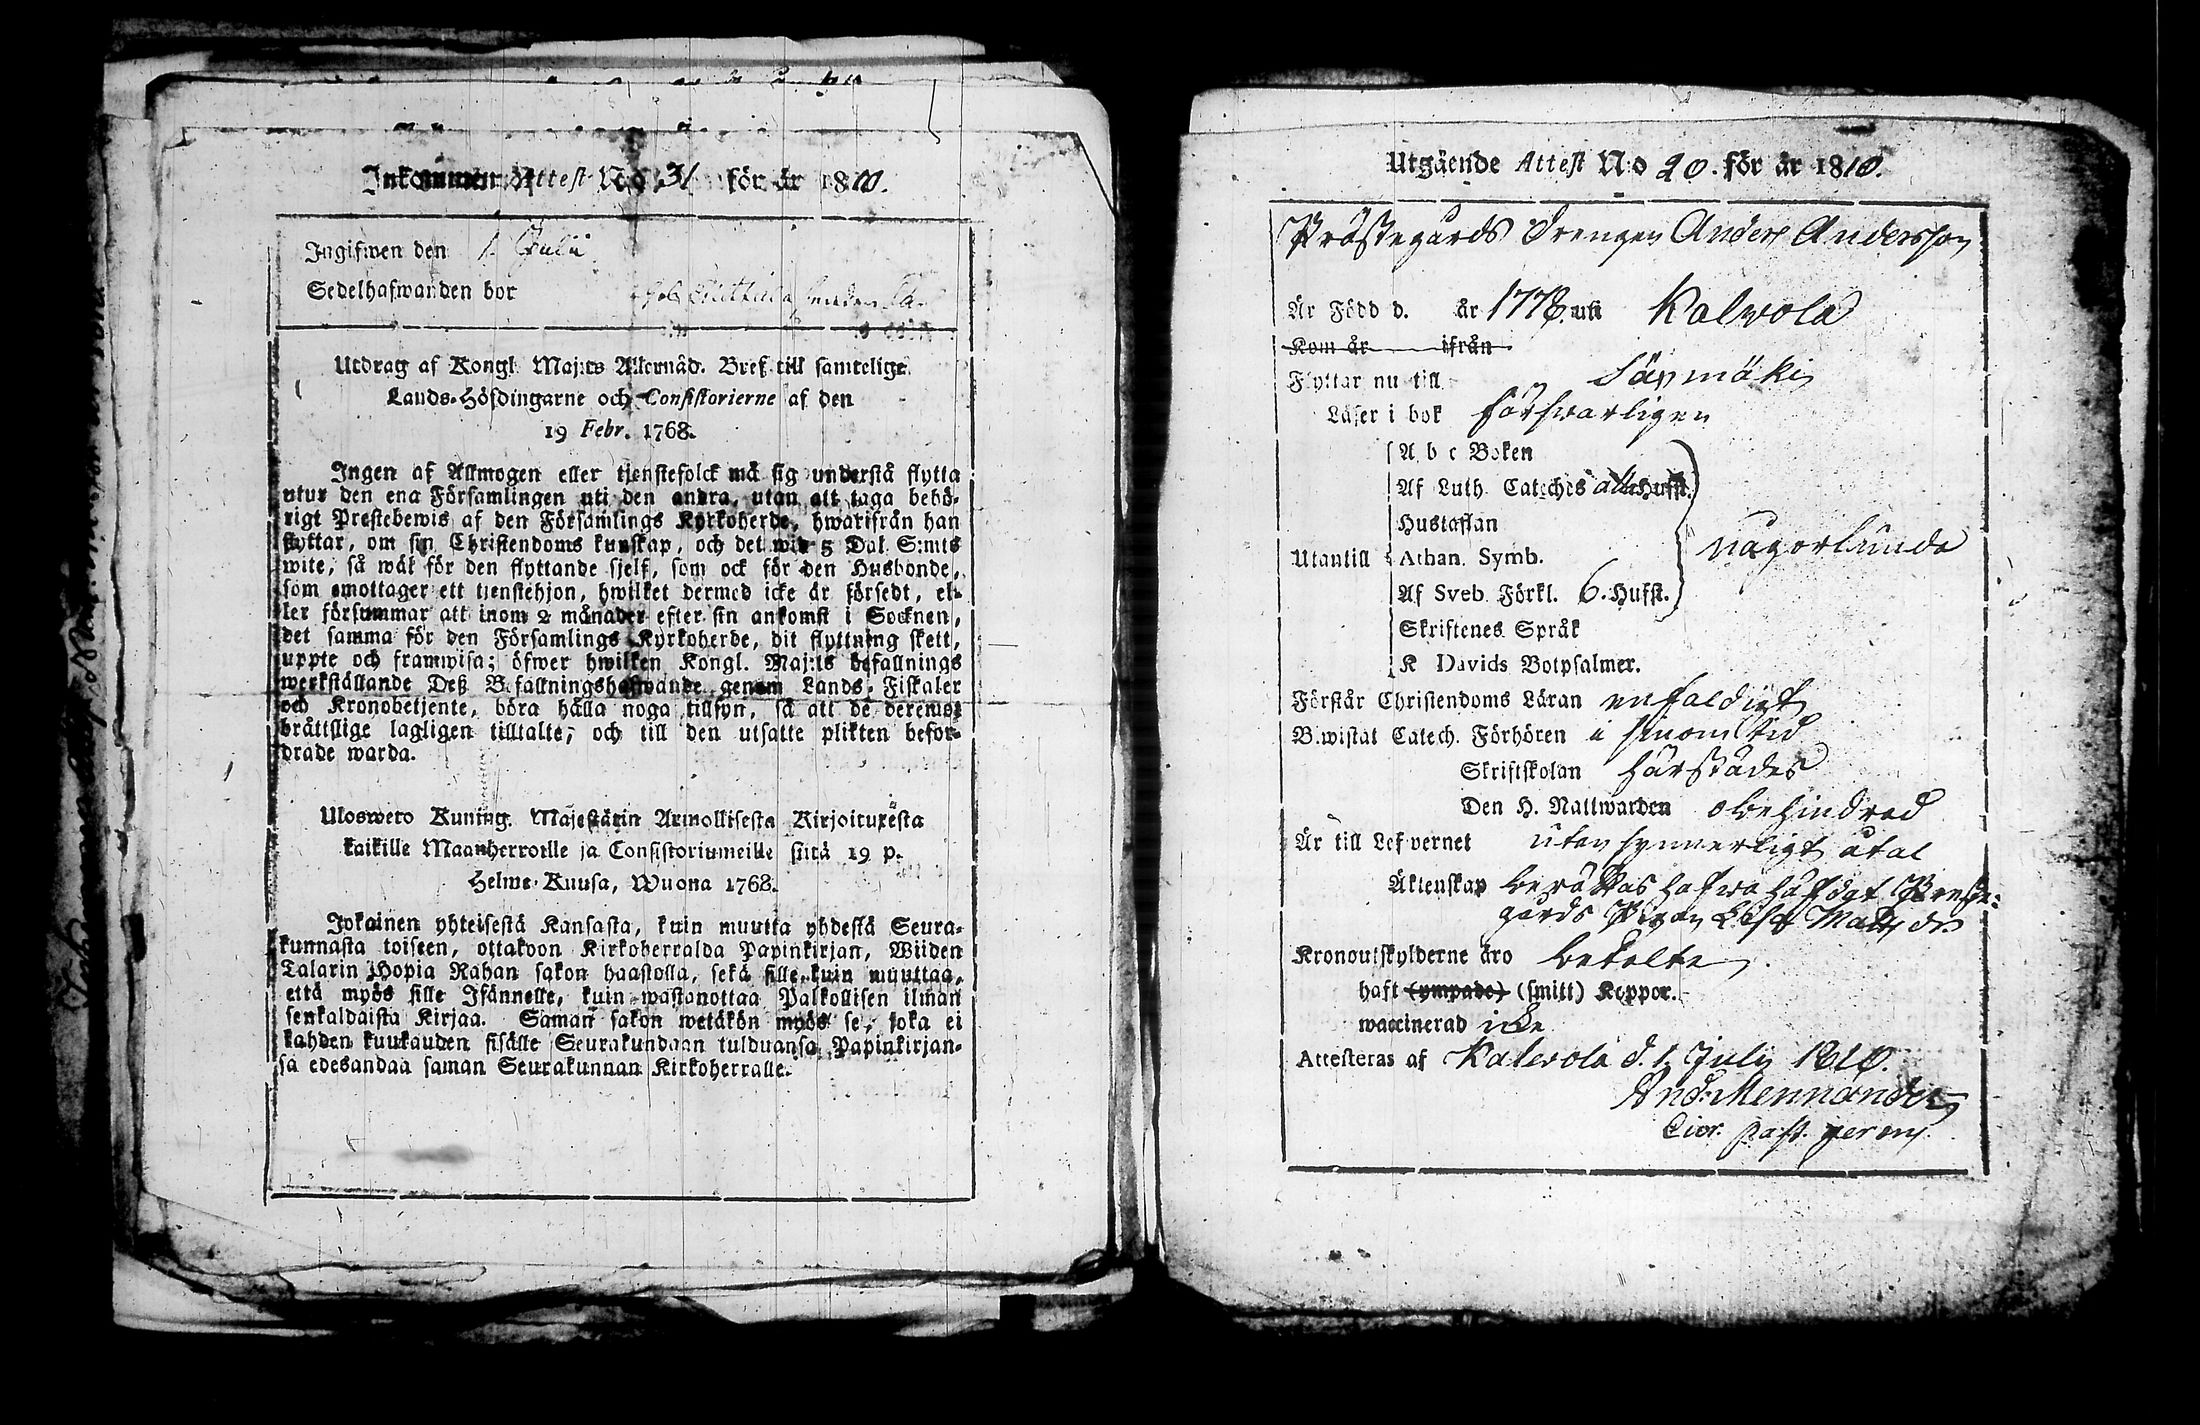 Inkommen Attest No 31 för år 1810.
Ingifwen den 1. Julii
Sedelhafwanden bor
Utdrag af Kongl. Maj:ts Allernåd. Bref till samtelige
Lands-Höfdingarne och Consistorierne af den
19 Febr. 1768.
Ingen af Allmogen eller tjenstefolck må sig understå flytta
utur den ena Församlingen uti den andra, utan att taga behö-
rigt Prestebewis af den Församlings Kyrkoherde, hwarifrån han
flyttar, om sin Christendoms kunskap, och det wid 5 Dal. S:mts
wite, så wäl för den flyttande sjelf, som ock för den Husbonde,
som emottager ett tjenstehjon, hwilket dermed icke är försedt, el-
ler försummar att inom 2 månader efter sin ankomst i Socknen,
det samma för den Församlings Kyrkoherde, dit flyttning skett,
uppte och framwisa; öfwer hwilken Kongl. Maj:ts befallnings
werkställande Deß Befallningshafwande genom Lands-Fiskaler
och Kronobetjente, böra hålla noga tillsyn, så att de deremot
bråttslige lagligen tilltalte, och till den utsatte plikten befor-
drade warda.
Ulosweto Kuning. Majestärin Armollisesta Kirjoituxesta
kaikille Maanherroille ja Consistoriumeille siitä 19 p.
Helme-Kuusa, Wuona 1768.
Jokainen yhteisestä Kansasta, kuin muutta yhdestä Seura-
kunnasta toiseen, ottakoon Kirkoherralda Papinkirjan, Wiiden
Talarin Hopia Rahan sakon haastolla, sekä sille kuin muuttaa,
että myös sille Isännelle, kuin wastanottaa Palkollisen ilman
senkaldaista Kirjaa. Saman sakon wetäkön myös se, joka ei
kahden kuukauden sisälle Seurakundaan tulduansa Papinkirjan-
sa edesandaa saman Seurakunnan Kirkoherralle.
Utgående Attest No 20. för år 1810.
Prästegårds Drengen Anders Andersson
Är Född d. år 1778. uti Kalvola
Kom år ifrån
Flyttar nu till Säxmäki
Läser i bok försvarligen
A b c Boken
Af Luth. Cateches alla Hufst.
Hustaflan
Utantill Athan. Symb. någorlunda
Af Sveb. Förkl. 6. Hufst.
Skriftenes Språk
K Davids Botpsalmer.
Förstår Christendoms Läran enfaldigt
Bewistat Catech. Förhören i sinom tid
Skriftskolan härstädes
Den H. Nattwarden obehindrad
Är till Lefvernet utan synnerligt åtal
Äktenskap berättas hafwa häfdat Preste-
gårds Pigan Lisa Matts dr.
Kronoutskylderne äro betalte
haft (ympade) (smitt) Koppor.
waccinerad icke
Attesteras af Kalvola d. 1 July 1810.
And: Mennander